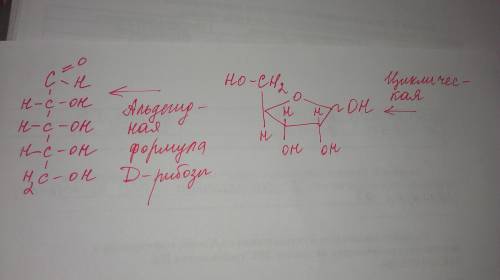 C=O
H
H-C-OH
H-C-OH
H-C-OH
H2C-OH
Альдегид-
ная
формула
D-рибозы
HO-CH2
O
H H OH
H
OH OH
Цикличес-
кая